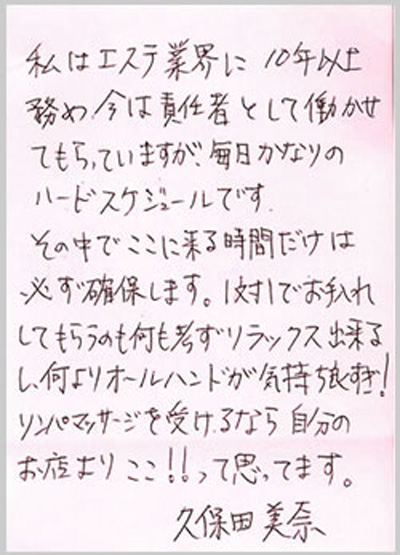 私はエステ業界に10年以上
務め、今は責任者として働かせ
てもらっていますが、毎日かなりの
ハードスケジュールです。
その中でここに来る時間だけは
必ず確保します。1対1でお手入れ
してもらうのも何も考ずリラックス出来る
し、何よりオールハンドが気持ち良すぎ!
リンパマッサージを受けるなら自分の
お店よりここ!!って思ってます。
久保田美奈